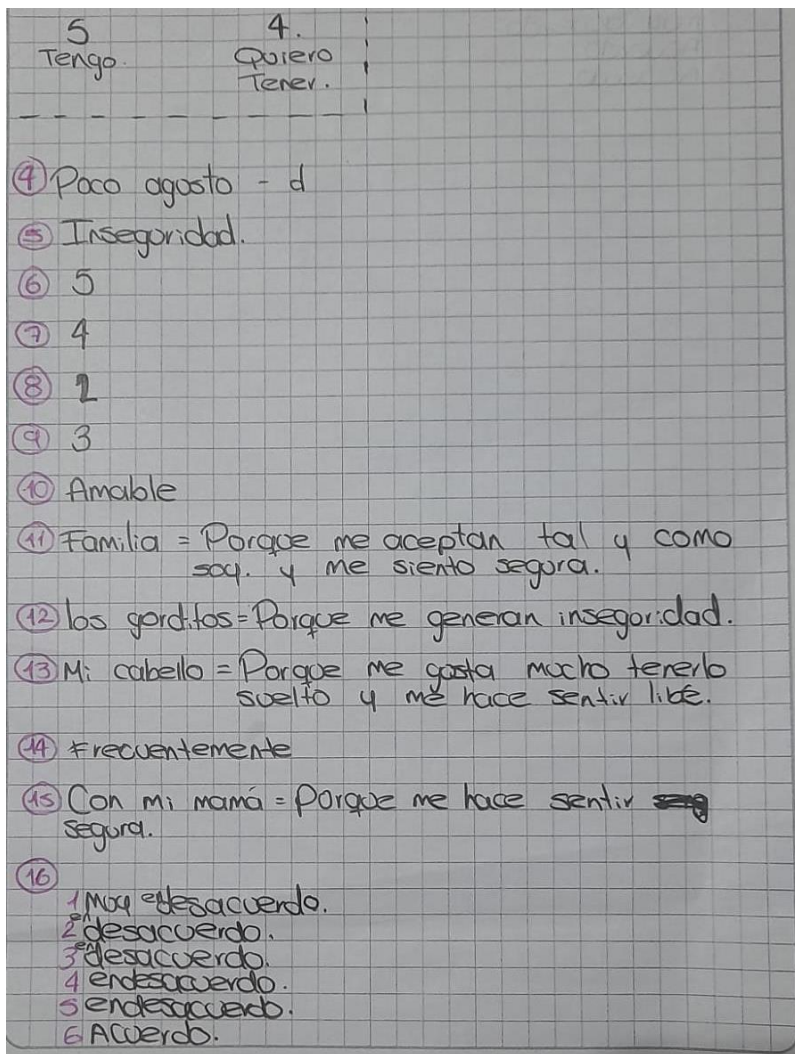 5 4.
Tengo. Quiero
Tener.
④ Poco agosto - d
⑤ Insegoridad.
⑥ 5
⑦ 4
⑧ 2
⑨ 3
⑩ Amable
⑪ Familia = Porque me aceptan tal y como
soy. y me siento segura.
⑫ los gorditos = Porque me generan insegoridad.
⑬ Mi cabello = Porque me gusta mucho tenerlo
suelto y me hace sentir libé.
⑭ Frecuentemente
⑮ Con mi mamá = Porque me hace sentir
segura.
⑯
1 Muy en desacuerdo.
2 en desacuerdo.
3 en desacuerdo.
4 endesacuerdo.
5 endesacuerdo.
6 Acuerdo.